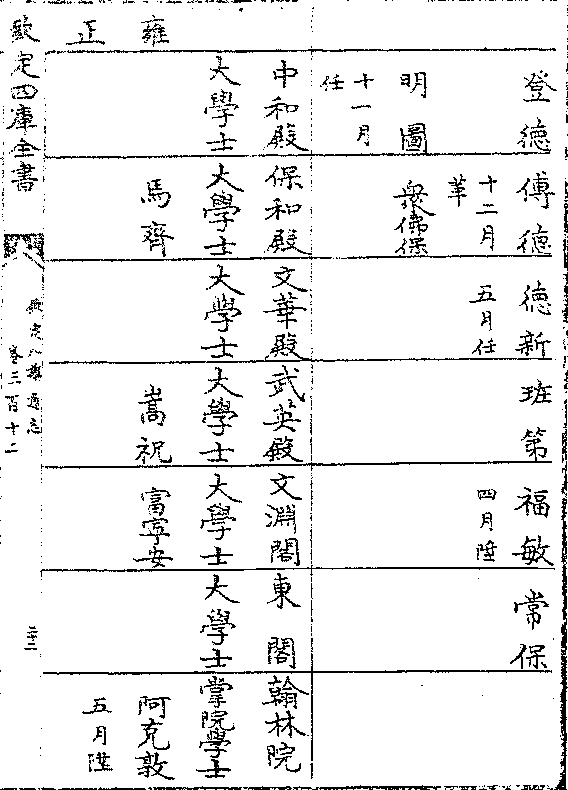 登德
明圖
十一月
任
傅德
十二月
革
衆佛保
德新
五月任
班第
福敏
四月陞
常保
雍正
中和殿
大學士
保和殿
大學士
馬齊
文華殿
大學士
武英殿
大學士
嵩祝
文淵閣
大學士
富寧安
東閣
大學士
翰林院
掌院學士
阿克敦
五月陞
欽定四庫全書
欽定八旗通志
卷三百十二